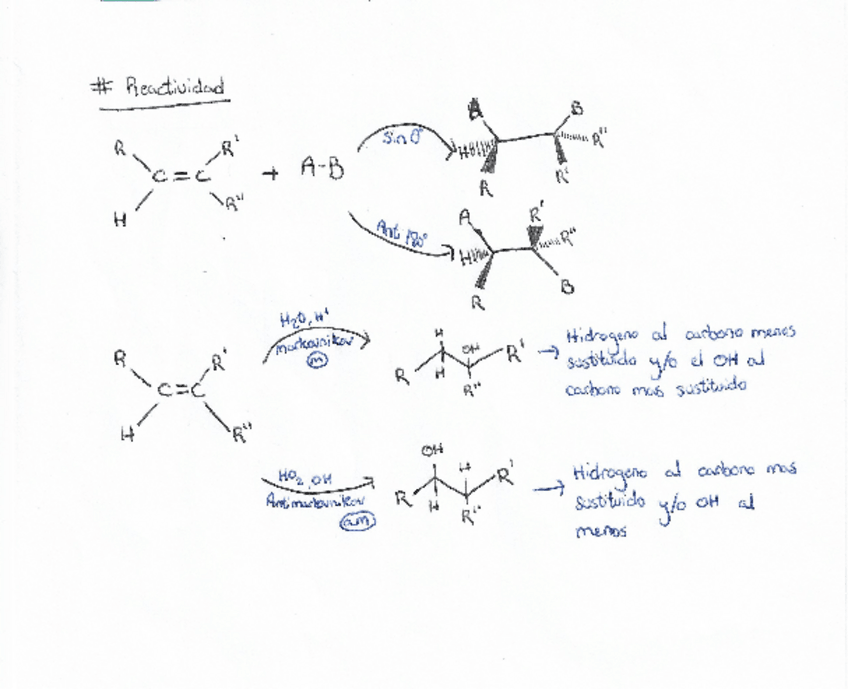 # Reactividad
R
R'
C=C
H
R"
+ A-B
Sin 0°
A
B
H
R"
R
R'
Anti 180°
A
R'
H
R"
R
B
R
R'
C=C
H
R"
H₂O, H⁺
markovnikov
m
H
OH
R
H
R"
R'
→ Hidrogeno al carbono menos
sustituido y/o el OH al
carbono mas sustituido
HO₂, OH
Antimarkovnikov
am
OH
H
R'
R
H
R"
→ Hidrogeno al carbono mas
sustituido y/o OH al
menos